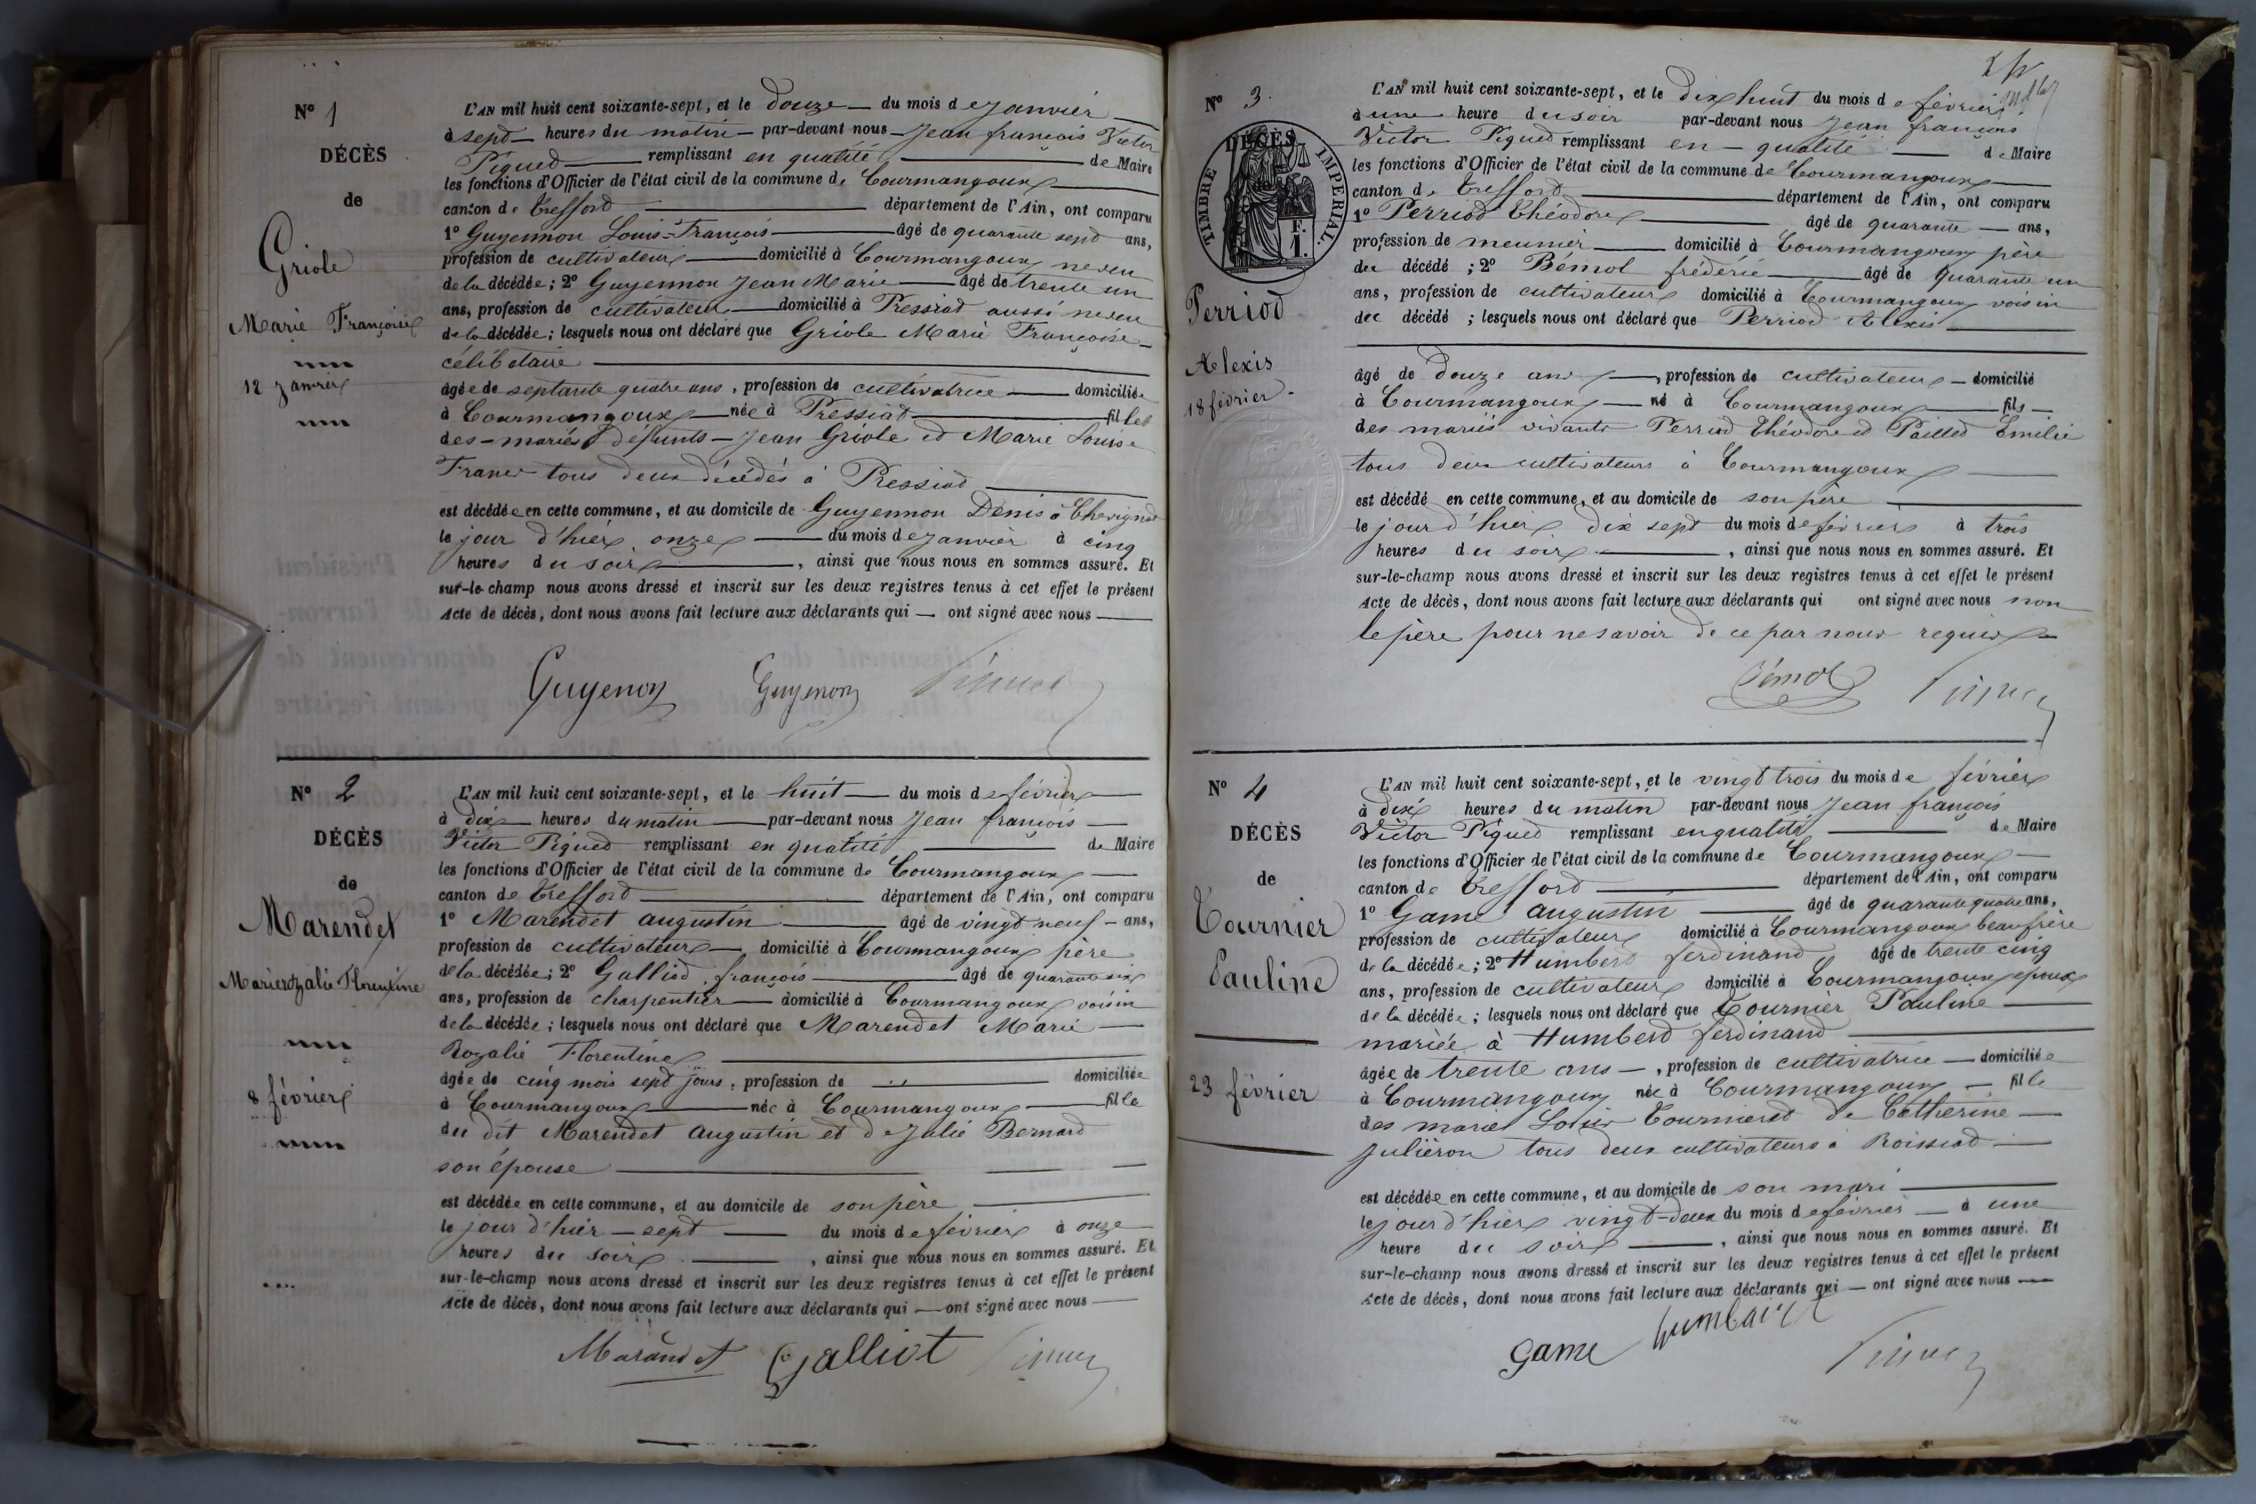 N° 1
DÉCÈS
de
Griole
Marie Françoise
12 Janvier
L'AN mil huit cent soixante-sept, et le douze du mois de Janvier
à sept heures du matin par-devant nous Jean françois Victor
Piqued remplissant en qualité de Maire
les fonctions d'Officier de l'état civil de la commune de Courmangoux
canton de Trefford département de l'Ain, ont comparu
1° Guyennon Louis-François âgé de quarante sept ans,
profession de cultivateur domicilié à Courmangoux neveu
de la décédée; 2° Guyennon Jean Marie âgé de trente un
ans, profession de cultivateur domicilié à Pressiat aussi neveu
de la décédée; lesquels nous ont déclaré que Griole Marie Françoise
célibataire
âgée de septante quatre ans, profession de cultivatrice domiciliée
à Courmangoux née à Pressiat fille
des mariés défunts Jean Griole et Marie Louise
Franc tous deux décédés à Pressiat
est décédée en cette commune, et au domicile de Guyennon Denis à Chevignat
le jour d'hier onze du mois de Janvier à cinq
heures du soir, ainsi que nous nous en sommes assuré. Et
sur-le-champ nous avons dressé et inscrit sur les deux registres tenus à cet effet le présent
Acte de décès, dont nous avons fait lecture aux déclarants qui ont signé avec nous
Guyenon Guyenon
N° 2
DÉCÈS
de
Marendet
Marie Rozalie Florentine
8 février
L'AN mil huit cent soixante-sept, et le huit du mois de février
à dix heures du matin par-devant nous Jean françois
Victor Piqued remplissant en qualité de Maire
les fonctions d'Officier de l'état civil de la commune de Courmangoux
canton de Trefford département de l'Ain, ont comparu
1° Marendet augustin âgé de vingt neuf ans,
profession de cultivateur domicilié à Courmangoux père
de la décédée; 2° Galliod françois âgé de quarante six
ans, profession de charpentier domicilié à Courmangoux voisin
de la décédée; lesquels nous ont déclaré que Marendet Marie
Rozalie Florentine
âgée de cinq mois sept jours, profession de domiciliée
à Courmangoux née à Courmangoux fille
du dit Marendet augustin et de Julie Bernard
son épouse
est décédée en cette commune, et au domicile de son père
le jour d'hier sept du mois de février à onze
heures du soir, ainsi que nous nous en sommes assuré. Et
sur-le-champ nous avons dressé et inscrit sur les deux registres tenus à cet effet le présent
Acte de décès, dont nous avons fait lecture aux déclarants qui ont signé avec nous
Marandet Galliot
N° 3
DÉCÈS
TIMBRE IMPÉRIAL
F.
1.
Perriod
Alexis
18 février
L'AN mil huit cent soixante-sept, et le dix huit du mois de février
à une heure du soir par-devant nous Jean françois
Victor Piqued remplissant en qualité de Maire
les fonctions d'Officier de l'état civil de la commune de Courmangoux
canton de Trefford département de l'Ain, ont comparu
1° Perriod Théodore âgé de quarante ans,
profession de meunier domicilié à Courmangoux père
du décédé; 2° Bémol frédéric âgé de quarante un
ans, profession de cultivateur domicilié à Courmangoux voisin
du décédé; lesquels nous ont déclaré que Perriod Alexis
âgé de douze ans, profession de cultivateur domicilié
à Courmangoux né à Courmangoux fils
des mariés vivants Perriod Théodore et Pailled Emilie
tous deux cultivateurs à Courmangoux
est décédé en cette commune, et au domicile de son père
le jour d'hier dix sept du mois de février à trois
heures du soir, ainsi que nous nous en sommes assuré. Et
sur-le-champ nous avons dressé et inscrit sur les deux registres tenus à cet effet le présent
Acte de décès, dont nous avons fait lecture aux déclarants qui ont signé avec nous non
le père pour ne savoir de ce par nous requis
Bémol
N° 4
DÉCÈS
de
Tournier
Pauline
23 février
L'AN mil huit cent soixante-sept, et le vingt trois du mois de février
à dix heures du matin par-devant nous Jean françois
Victor Piqued remplissant en qualité de Maire
les fonctions d'Officier de l'état civil de la commune de Courmangoux
canton de Trefford département de l'Ain, ont comparu
1° Game augustin âgé de quarante quatre ans,
profession de cultivateur domicilié à Courmangoux beau frère
de la décédée; 2° Humberd ferdinand âgé de trente cinq
ans, profession de cultivateur domicilié à Courmangoux epoux
de la décédée; lesquels nous ont déclaré que Tournier Pauline
mariée à Humberd ferdinand
âgée de trente ans, profession de cultivatrice domiciliée
à Courmangoux née à Courmangoux fille
des mariés Louis Tournier et de Catherine
Juliéron tous deux cultivateurs à Roissiad
est décédée en cette commune, et au domicile de son mari
le jour d'hier vingt-deux du mois de février à une
heure du soir, ainsi que nous nous en sommes assuré. Et
sur-le-champ nous avons dressé et inscrit sur les deux registres tenus à cet effet le présent
Acte de décès, dont nous avons fait lecture aux déclarants qui ont signé avec nous
Game